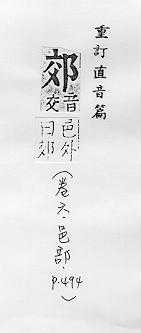 重訂直音篇
郊
音交
邑外
曰郊
(卷六·邑部·p.494)